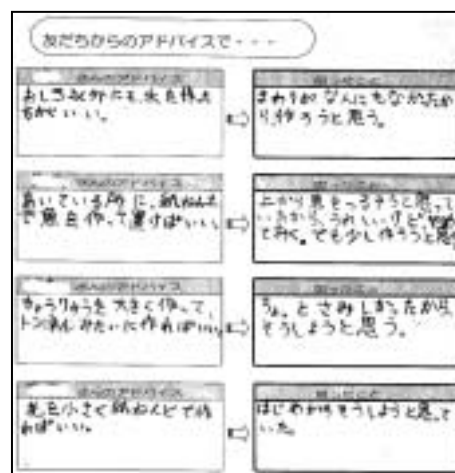 友だちからのアドバイスで・・・
さんのアドバイス
おしろ以外にも、火を作った
方がいい。
思ったこと
まわりがなんにもなかったか
ら、作ろうと思う。
さんのアドバイス
あいている所に、紙ねんど
で魚を作って置けばいい。
思ったこと
上から魚をつるそうと思って
いたから、うれしいけど
ておく。でも少し作ろうと思
さんのアドバイス
きょうりゅうを大きく作って、
トンネルみたいに作ればいい。
思ったこと
ちょっとさみしかったから
そうしようと思う。
さんのアドバイス
小さく紙ねんどで作
ればいい。
思ったこと
はじめからそうしようと思って
いた。